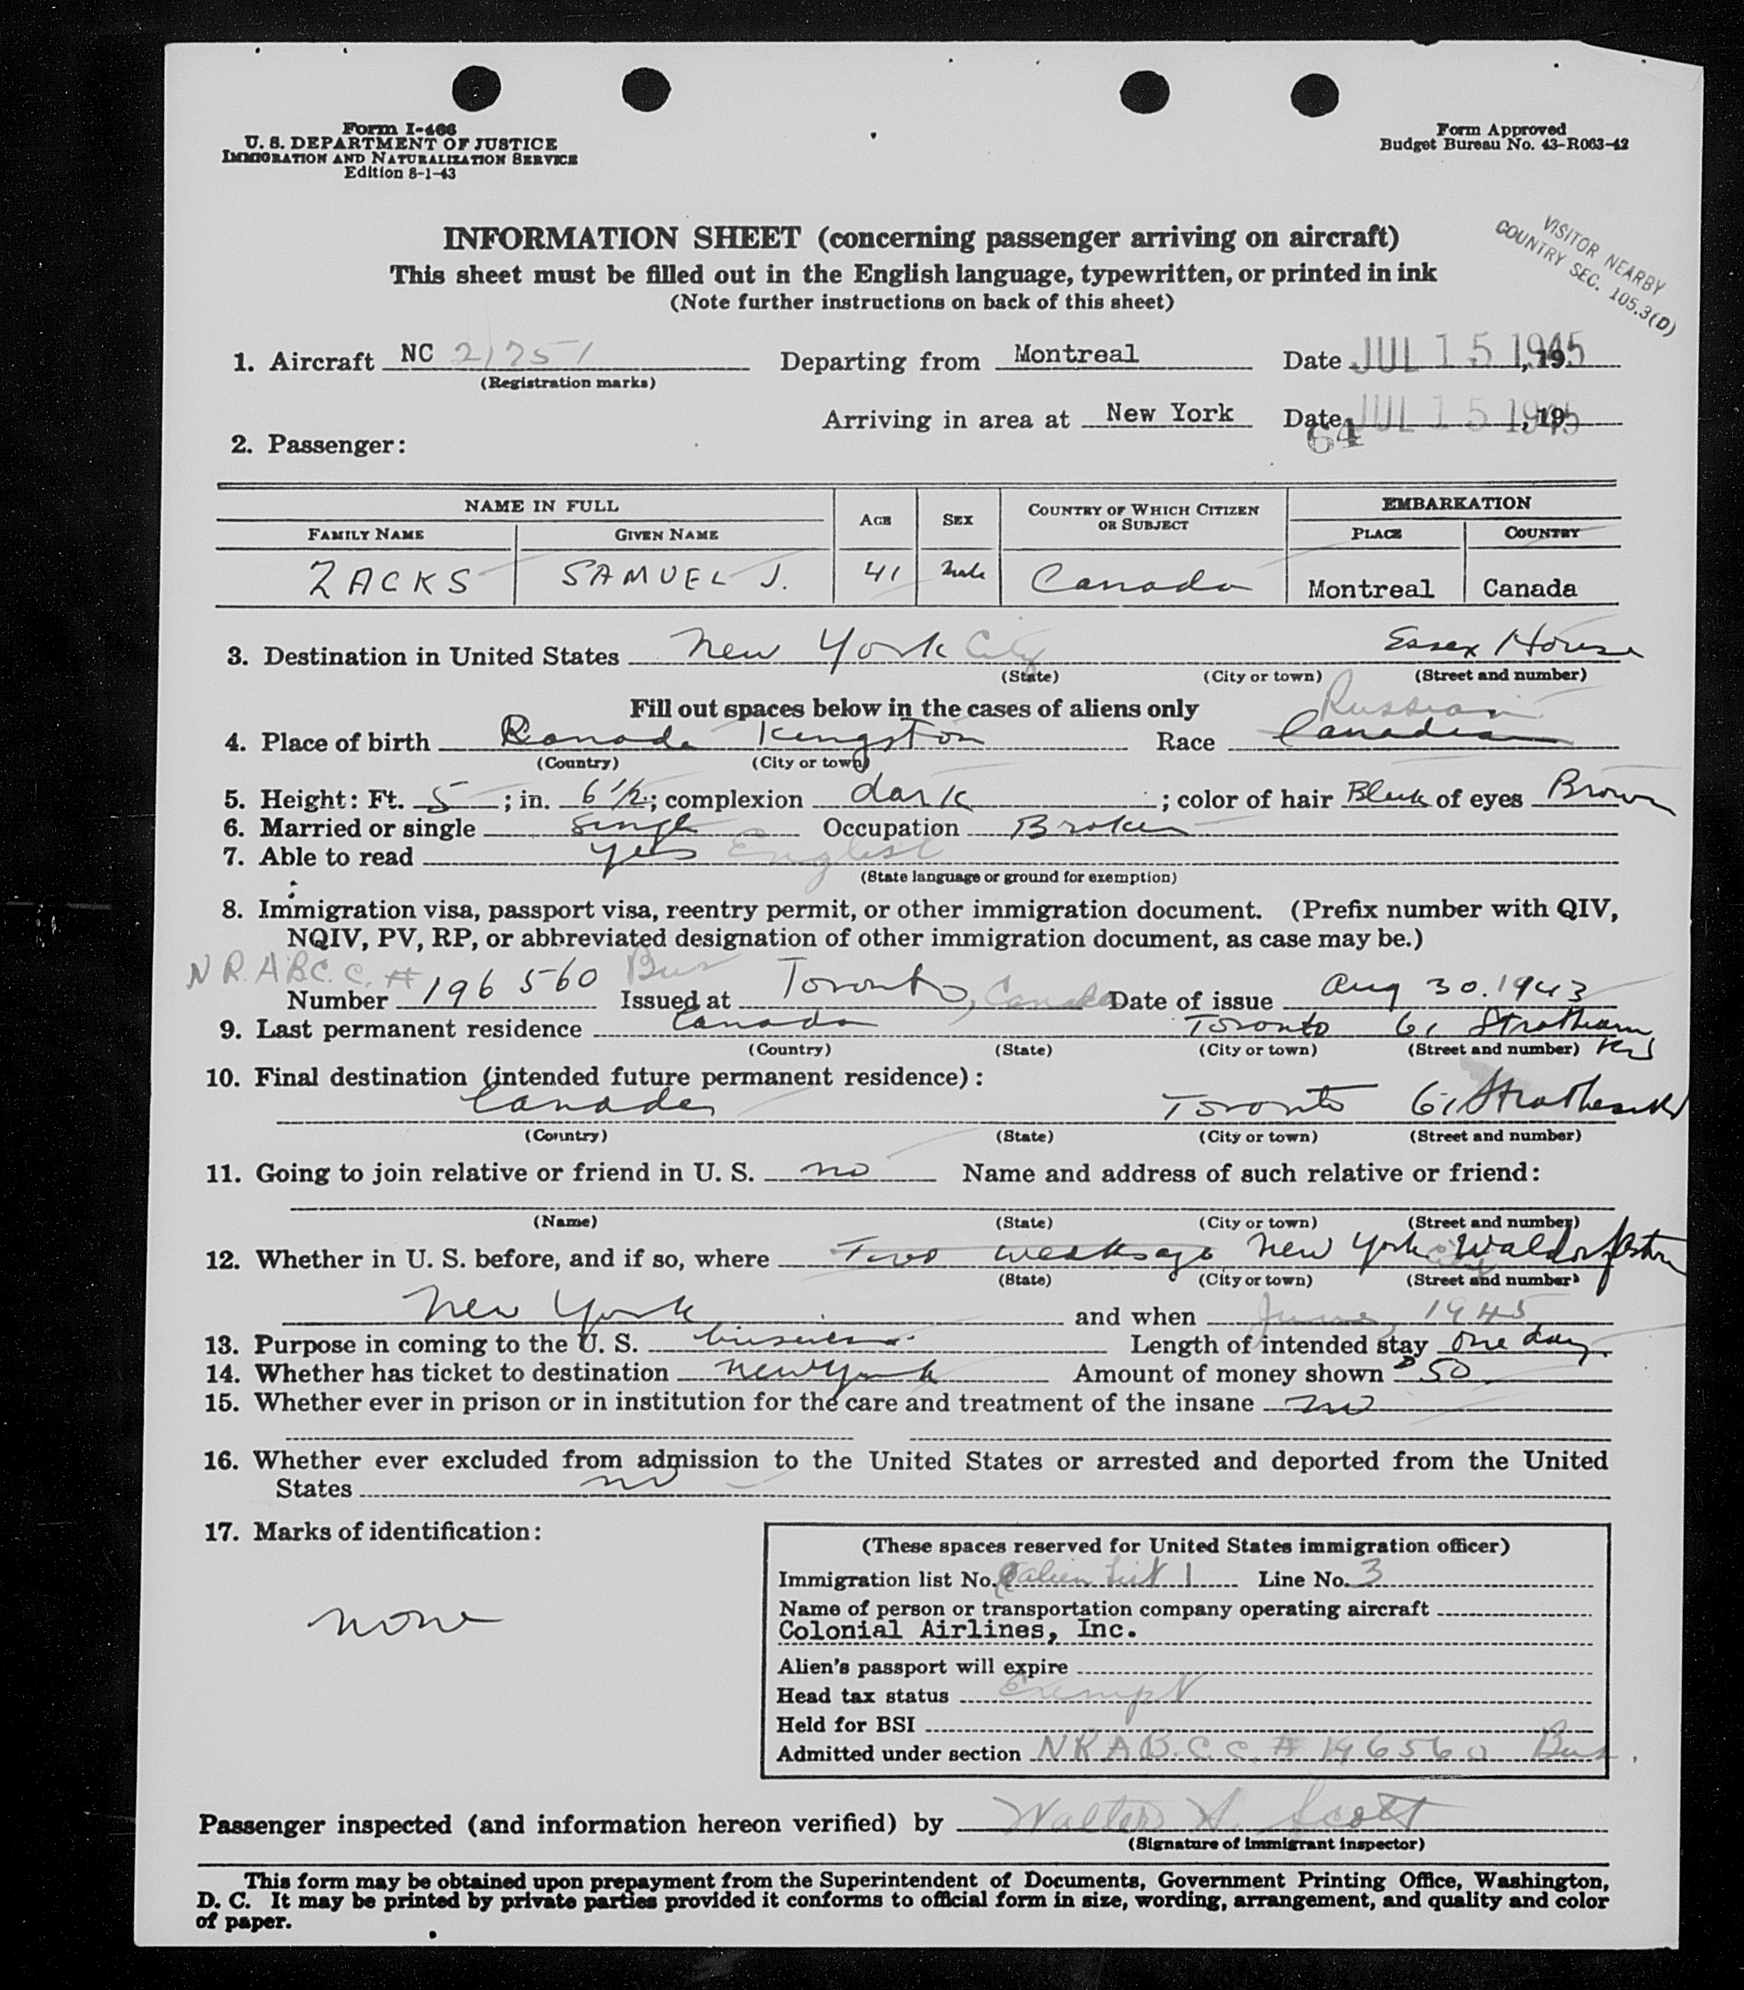 Form I-466
U. S. DEPARTMENT OF JUSTICE
IMMIGRATION AND NATURALIZATION SERVICE
Edition 8-1-43
Form Approved
Budget Bureau No. 43-R063-42
INFORMATION SHEET (concerning passenger arriving on aircraft)
This sheet must be filled out in the English language, typewritten, or printed in ink
(Note further instructions on back of this sheet)
VISITOR NEARBY
COUNTRY SEC. 105.3(D)
1. Aircraft NC 21751 Departing from Montreal Date JUL 15 1945, 19
(Registration marks)
Arriving in area at New York Date JUL 15 1945, 19
64
2. Passenger:
NAME IN FULL AGE SEX COUNTRY OF WHICH CITIZEN OR SUBJECT EMBARKATION
FAMILY NAME GIVEN NAME PLACE COUNTRY
ZACKS SAMUEL J. 41 Male Canada Montreal Canada
3. Destination in United States New York City Essex House
(State) (City or town) (Street and number)
Fill out spaces below in the cases of aliens only Russian
4. Place of birth Canada Kingston Race Canadian
(Country) (City or town)
5. Height: Ft. 5; in. 6 1/2; complexion dark; color of hair Black of eyes Brown
6. Married or single Single Occupation Broker
7. Able to read yes English
(State language or ground for exemption)
8. Immigration visa, passport visa, reentry permit, or other immigration document. (Prefix number with QIV,
NQIV, PV, RP, or abbreviated designation of other immigration document, as case may be.)
N.R.A.B.C.C. # Bus
Number 196560 Issued at Toronto, Canada Date of issue Aug 30. 1943
9. Last permanent residence Canada Toronto 61 Strathearn Rd
(Country) (State) (City or town) (Street and number)
10. Final destination (intended future permanent residence):
Canada Toronto 61 Strathearn Rd
(Country) (State) (City or town) (Street and number)
11. Going to join relative or friend in U. S. no Name and address of such relative or friend:
(Name) (State) (City or town) (Street and number)
12. Whether in U. S. before, and if so, where Two weeks ago New York City Waldorf Astoria
(State) (City or town) (Street and number)
New York and when June, 1945
13. Purpose in coming to the U. S. business Length of intended stay one day
14. Whether has ticket to destination New York Amount of money shown $50
15. Whether ever in prison or in institution for the care and treatment of the insane no
16. Whether ever excluded from admission to the United States or arrested and deported from the United
States no
17. Marks of identification:
none
(These spaces reserved for United States immigration officer)
Immigration list No. alien list 1 Line No. 3
Name of person or transportation company operating aircraft
Colonial Airlines, Inc.
Alien's passport will expire
Head tax status Exempt
Held for BSI
Admitted under section N.R.A.B.C.C. # 196560 Bus.
Passenger inspected (and information hereon verified) by Walter A. Scott
(Signature of immigrant inspector)
This form may be obtained upon prepayment from the Superintendent of Documents, Government Printing Office, Washington,
D. C. It may be printed by private parties provided it conforms to official form in size, wording, arrangement, and quality and color
of paper.